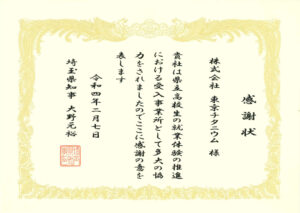 感謝状
株式会社 東京チタニウム 様
貴社は県立高校生の就業体験の推進
における受入事業所として多大の協
力をされましたのでここに感謝の意を
表します
令和四年二月七日
埼玉県知事 大野元裕